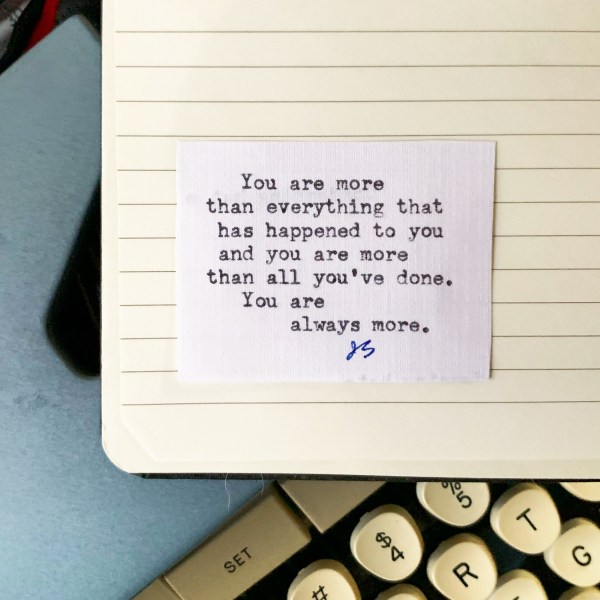 You are more
than everything that
has happened to you
and you are more
than all you've done.
You are
always more.
JS
SET
$ 4
% 5
T
#
R
G